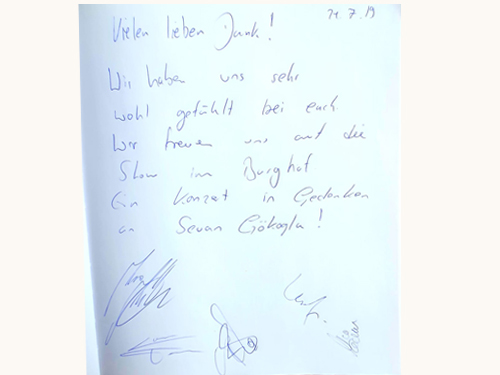 21.7.19
Vielen lieben Dank!
Wir haben uns sehr
wohl gefühlt bei euch
Wir freuen uns auf die
Show im Burghof
Ein Konzert in Gedenken
an Sevan Gökoglu!